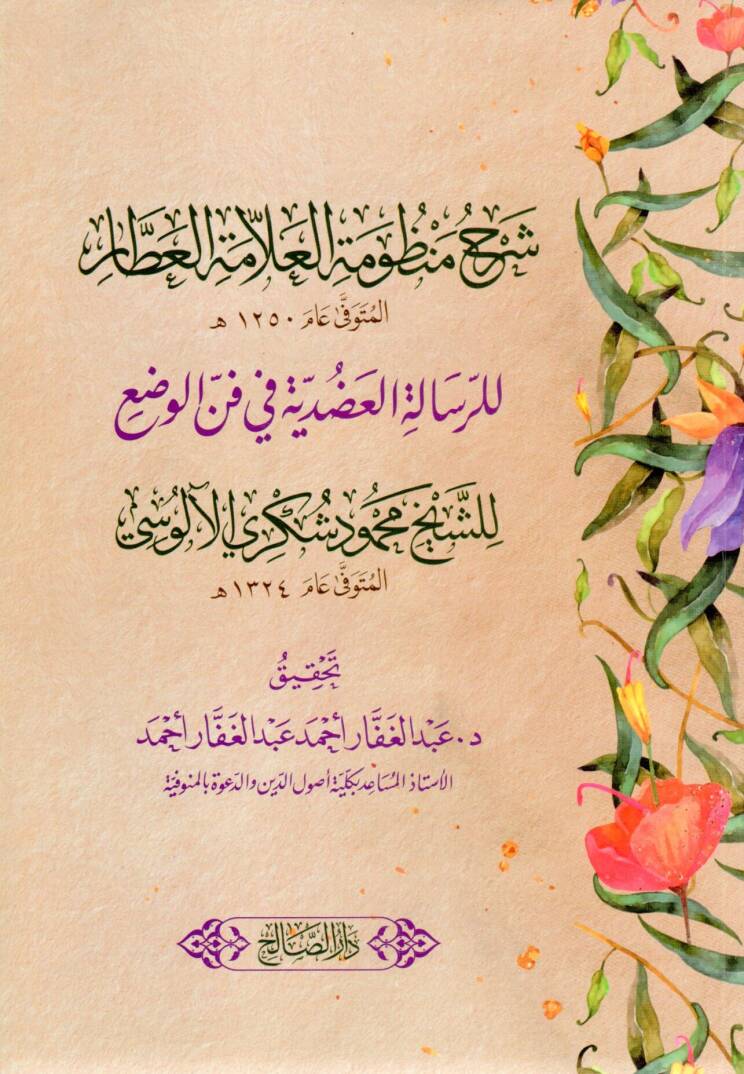 شَرْحُ مَنْظُومَةِ العَلَّامَةِ العَطَّارِ
المُتَوَفَّى عَامَ ١٢٥٠ هـ
للرِّسَالَةِ العَضُدِيَّة فِي فَنِّ الوضعِ
لِلشَّيْخِ مَحْمُود شُكْرِي الآلُوسِي
المُتَوَفَّى عَامَ ١٣٢٤ هـ
تَحْقِيقُ
د. عَبْد الغَفَّار أَحْمَد عَبْد الغَفَّار أَحْمَد
الأستاذ المسَاعِد بكلّيَة أصُول الدّين والدَعوَة بالمنوفيَة
دَارُ الصَّالِحِ